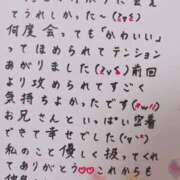 てうれしかった〜(≧∀≦)
何度会っても"かわいい"
ってほめられてテンション
あがりました(≧∀≦)前回
より攻められてすごく
気持ちよかったです(♥ω♥)
お兄さんといっぱい密着
できて幸せでした(*ˊᵕˋ*)
私のこと優しく扱ってくれ
てありがとう♥♥これからも